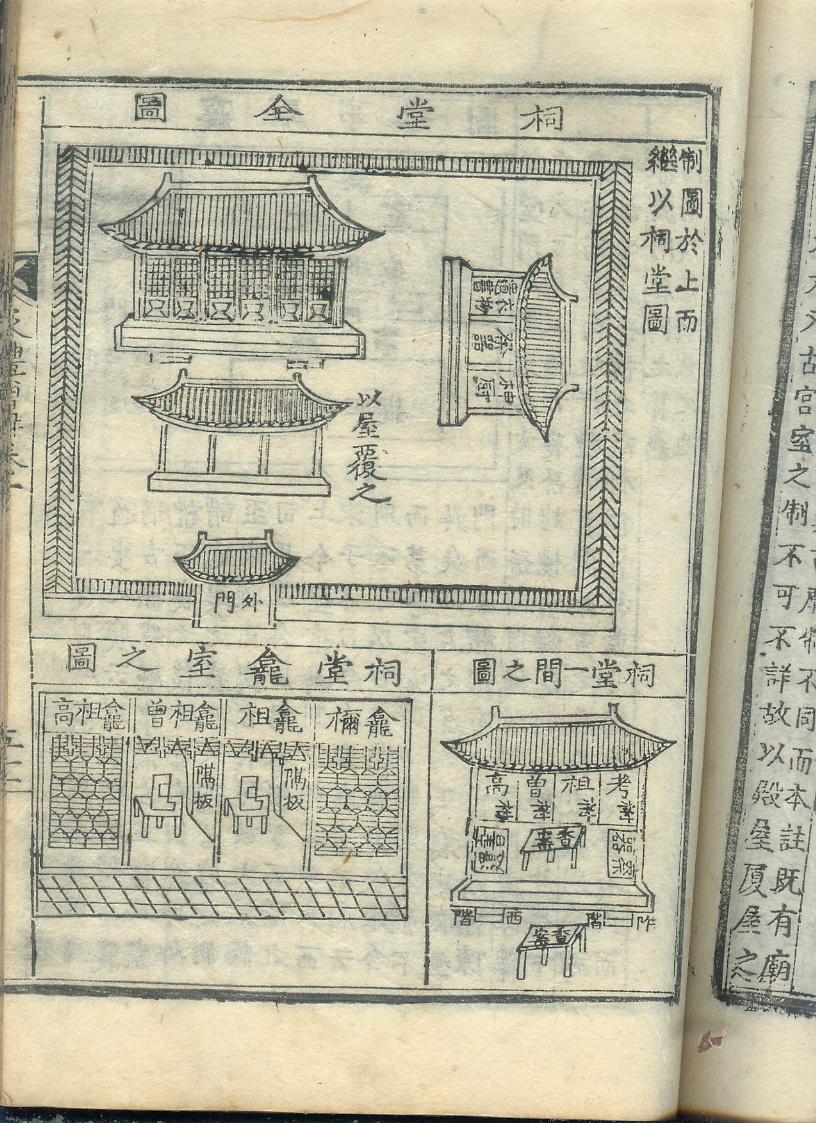 制不同而本註既有廟
古宮室之制不可不詳故以殿屋厦屋之
制圖於上而
繼以祠堂圖
祠堂全圖
遺書衣物
祭器
神厨
以屋覆之
外門
祠堂一間之圖
考
祖
曾
高
祭器
遺書
香案
阼階
西階
香案
祠堂龕室之圖
禰龕
祖龕
曾祖龕
高祖龕
隔板
隔板